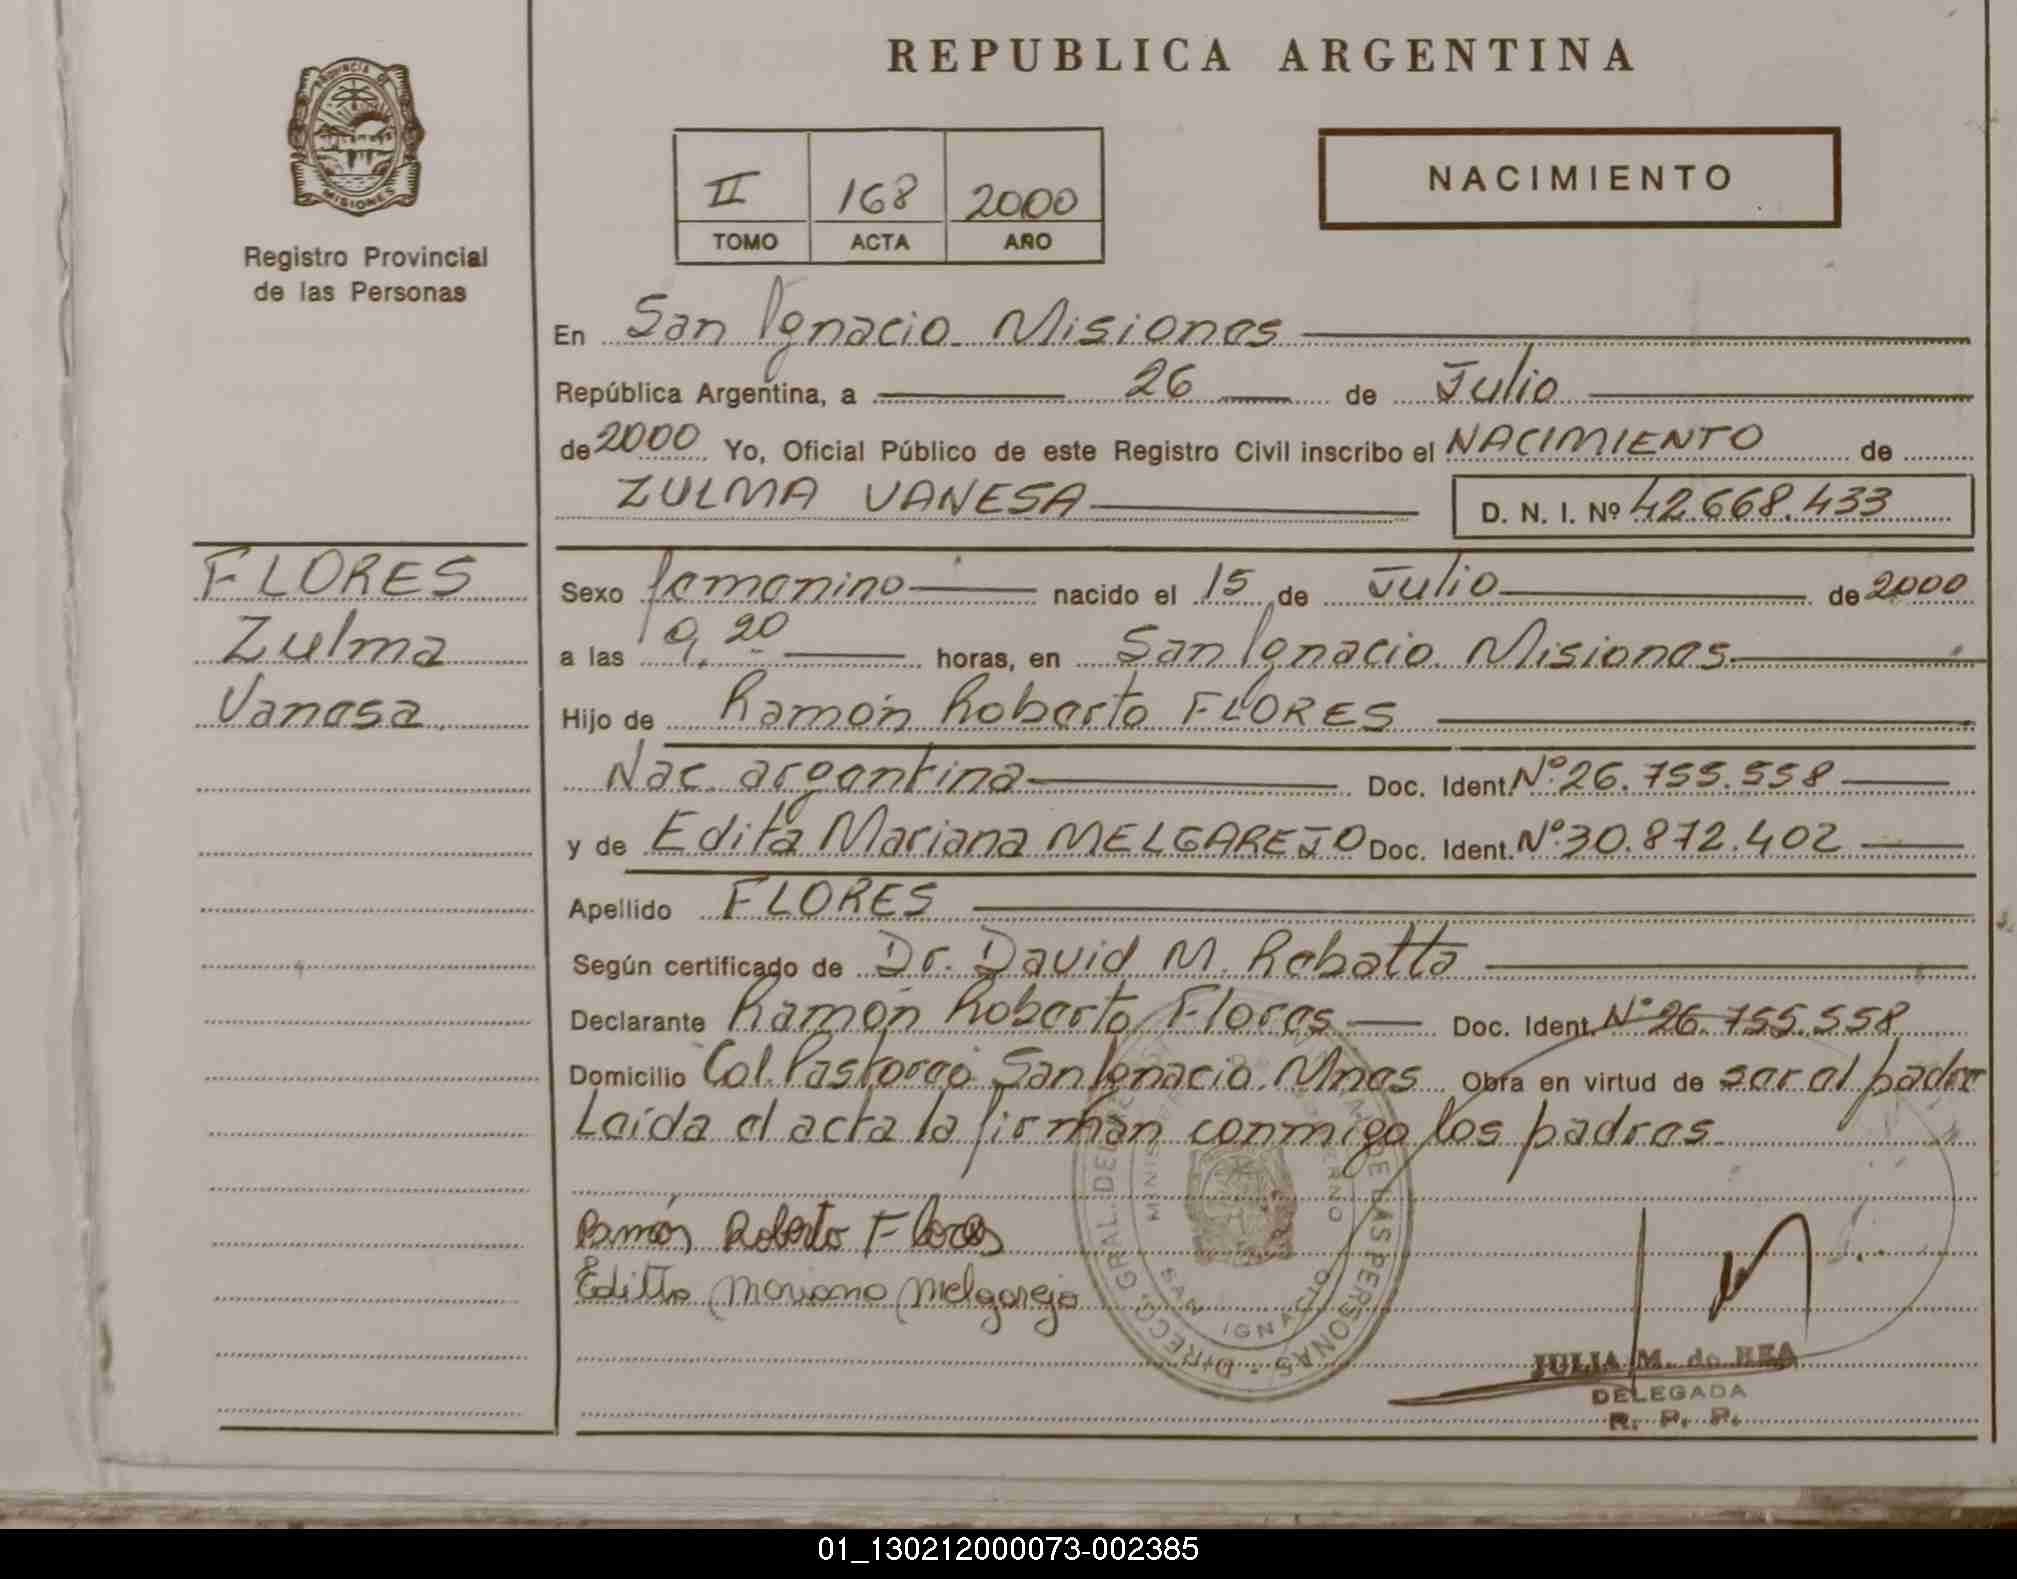 REPUBLICA ARGENTINA
PROVINCIA DE
MISIONES
Registro Provincial
de las Personas
II 168 2000
TOMO ACTA AÑO
NACIMIENTO
En San Ignacio Misiones
República Argentina, a 26 de Julio
de 2000 Yo, Oficial Público de este Registro Civil inscribo el NACIMIENTO de
ZULMA VANESA D. N. I. Nº 42.668.433
FLORES
Zulma
Vanesa
Sexo femenino nacido el 15 de Julio de 2000
a las 9,20 horas, en San Ignacio Misiones
Hijo de Ramón Roberto FLORES
Nac. argentina Doc. Ident. Nº 26.755.558
y de Edita Mariana MELGAREJO Doc. Ident. Nº 30.872.402
Apellido FLORES
Según certificado de Dr. David M. Rebatta
Declarante Ramón Roberto Flores Doc. Ident. Nº 26.755.558
Domicilio Col. Pastoreo San Ignacio. Mnes Obra en virtud de ser el padre
Leída el acta la firman conmigo los padres
Ramón Roberto Flores
Editta Mariana Melgarejo
DIRECC. GRAL. DEL DE LAS PERSONAS
SAN IGNACIO
JULIA M. de REA
DELEGADA
R. P. P.
01_130212000073-002385